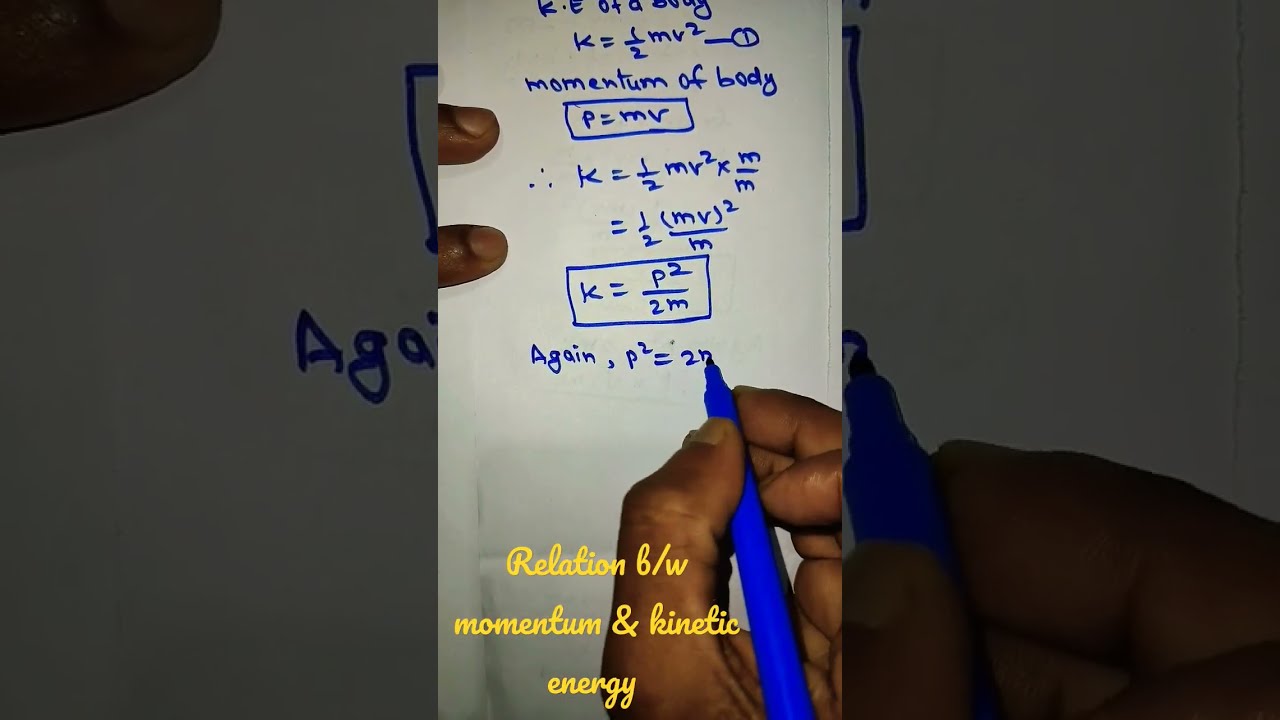 K.E of a body
K = 1/2 mv² — ①
momentum of body
P = mv
∴ K = 1/2 mv² × m/m
= 1/2 (mv)²/m
K = P²/2m
Again, P² = 2
Relation b/w
momentum & kinetic
energy